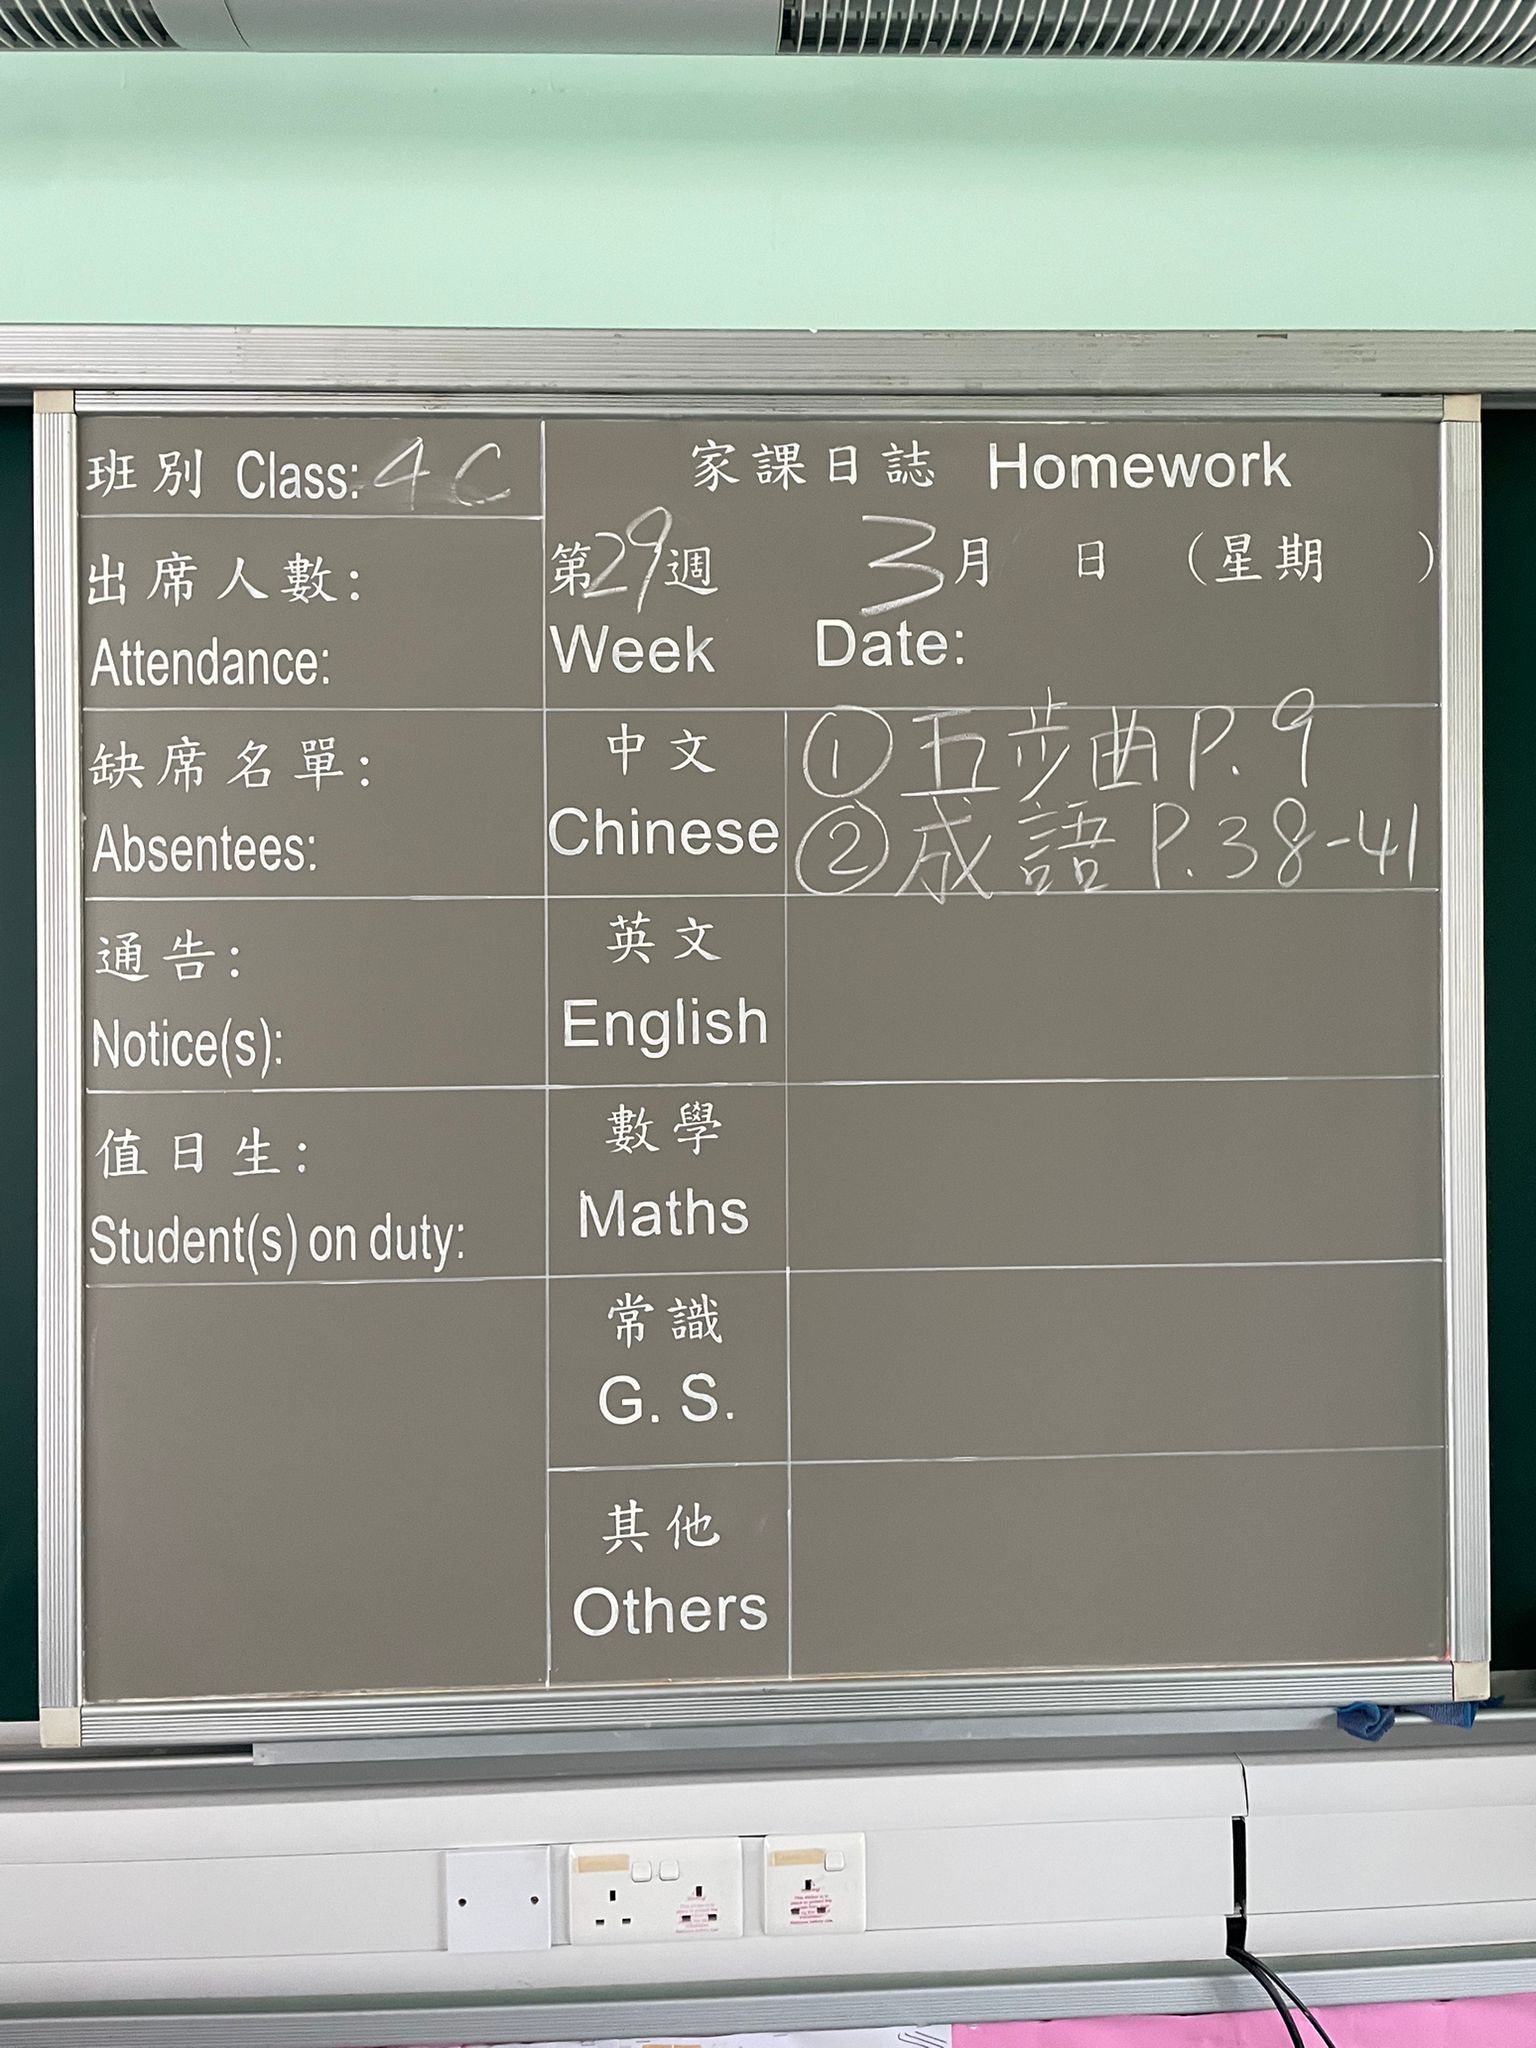 班別 Class: 4C
出席人數:
Attendance:
缺席名單:
Absentees:
通告:
Notice(s):
值日生:
Student(s) on duty:
家課日誌 Homework
第29週 3月 日 (星期 )
Week Date:
中文
Chinese
①五步曲P.9
②成語P.38-41
英文
English
數學
Maths
常識
G. S.
其他
Others